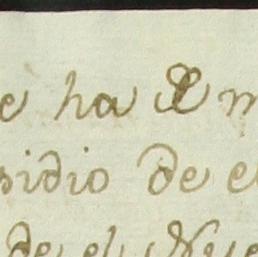 e ha
sidio de e
de el Nue